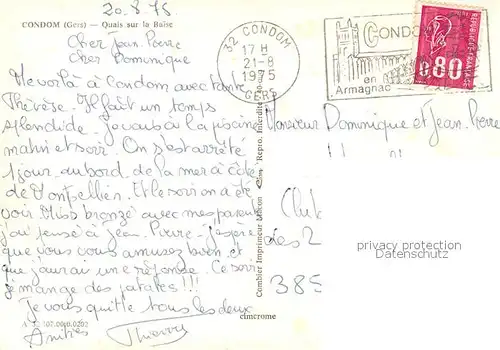 20.8.75
CONDOM (Gers) — Quais sur la Baïse
Cher Jean. Pierre
Cher Dominique
Me voilà à Condom avec tante
Thérèse. Il fait un temps
splendide. je vais à la piscine
matin et soir. On s'est arrêté
1 jour au bord de la mer à côté
de Montpellier. Et le soir on a été
voir Miss bronzé avec mes parents
j'ai pensé à Jean. Pierre. J'espère
que vous vous amusez bien et
que j'aurai une réponse. Ce soir
je mange des patates !!!
Je vous quitte tous les deux
Amitiés Thierry
Combier Imprimeur Mâcon
Repro. Interdite
cimcrome
32 CONDOM
17 H
21-8
1975
GERS
CONDOM
en
Armagnac
REPUBLIQUE FRANCAISE
0,80
Monsieur Dominique et Jean. Pierre
Club
des 2
385
privacy protection
VEREDELTE ANSICHTSKARTEN